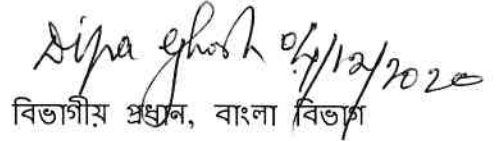 Dipa Ghosh 04/12/2020
বিভাগীয় প্রধান, বাংলা বিভাগ